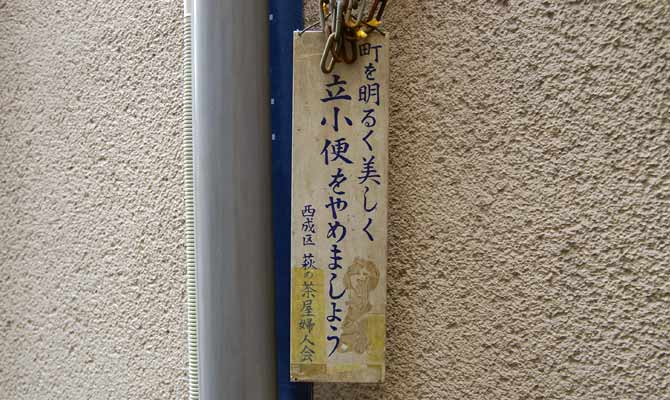 町を明るく美しく
立小便をやめましょう
西成区 萩の茶屋婦人会